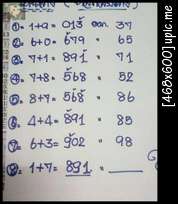 ① = 1+4 = 013 ออก. 37
② = 6+0 = 679 " 65
③ = 7+1 = 891 " 71
④ = 7+8 = 568 " 52
⑤ = 8+7 = 568 " 86
⑥ = 4+4 = 891 " 85
⑦ = 6+3 = 902 " 98
⑧ = 1+7 = 891 "
[466x600] upic.me